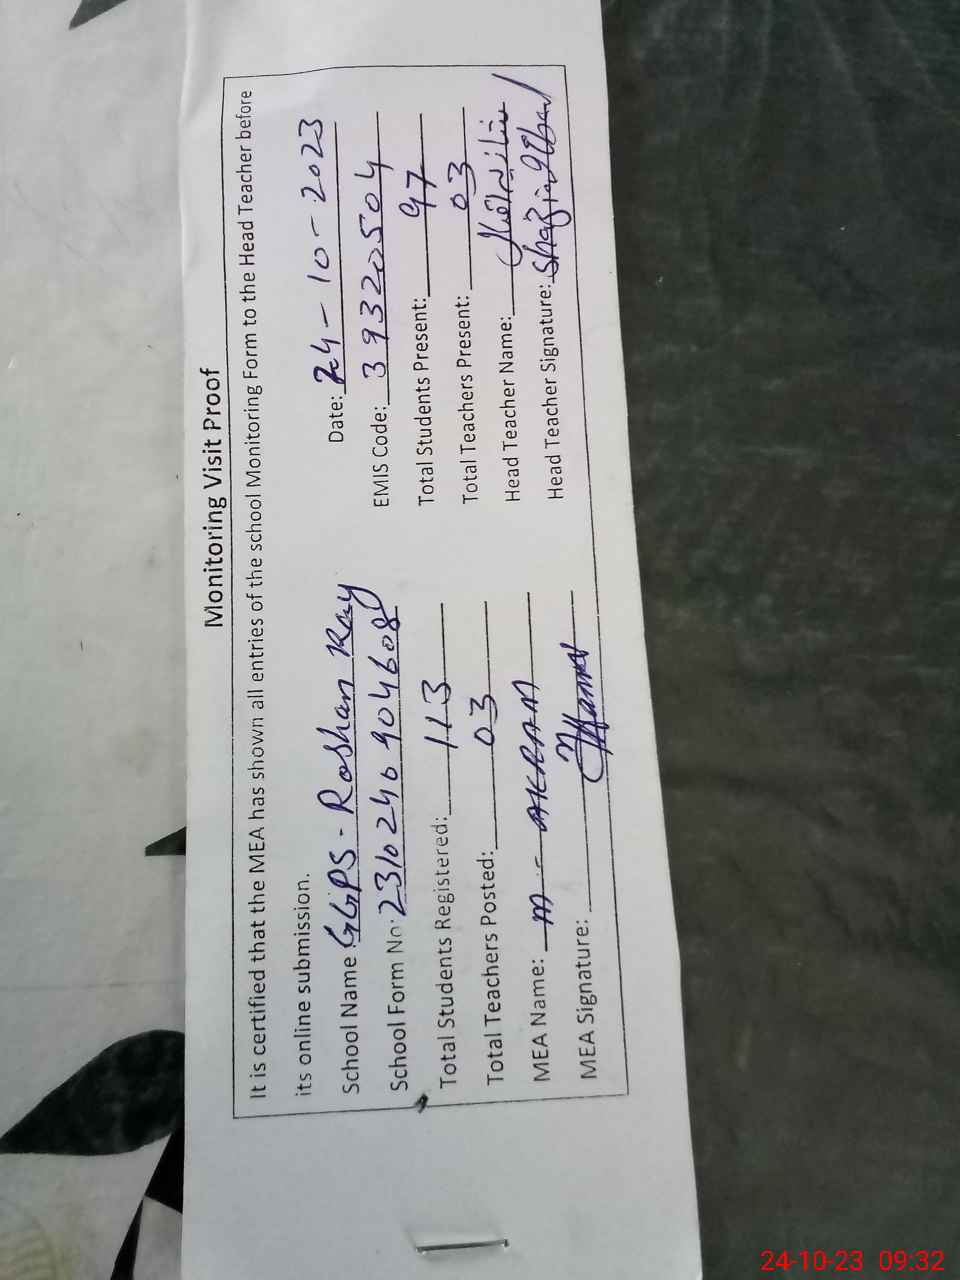 Monitoring Visit Proof
It is certified that the MEA has shown all entries of the school Monitoring Form to the Head Teacher before
its online submission.
School Name: GGPS - Roshan Ray Date: 24-10-2023
School Form No: 2310240904608 EMIS Code: 39320504
Total Students Registered: 113 Total Students Present: 97
Total Teachers Posted: 03 Total Teachers Present: 03
MEA Name: M - AKRAM Head Teacher Name:
MEA Signature: Head Teacher Signature: Shazia
24-10-23 09:32